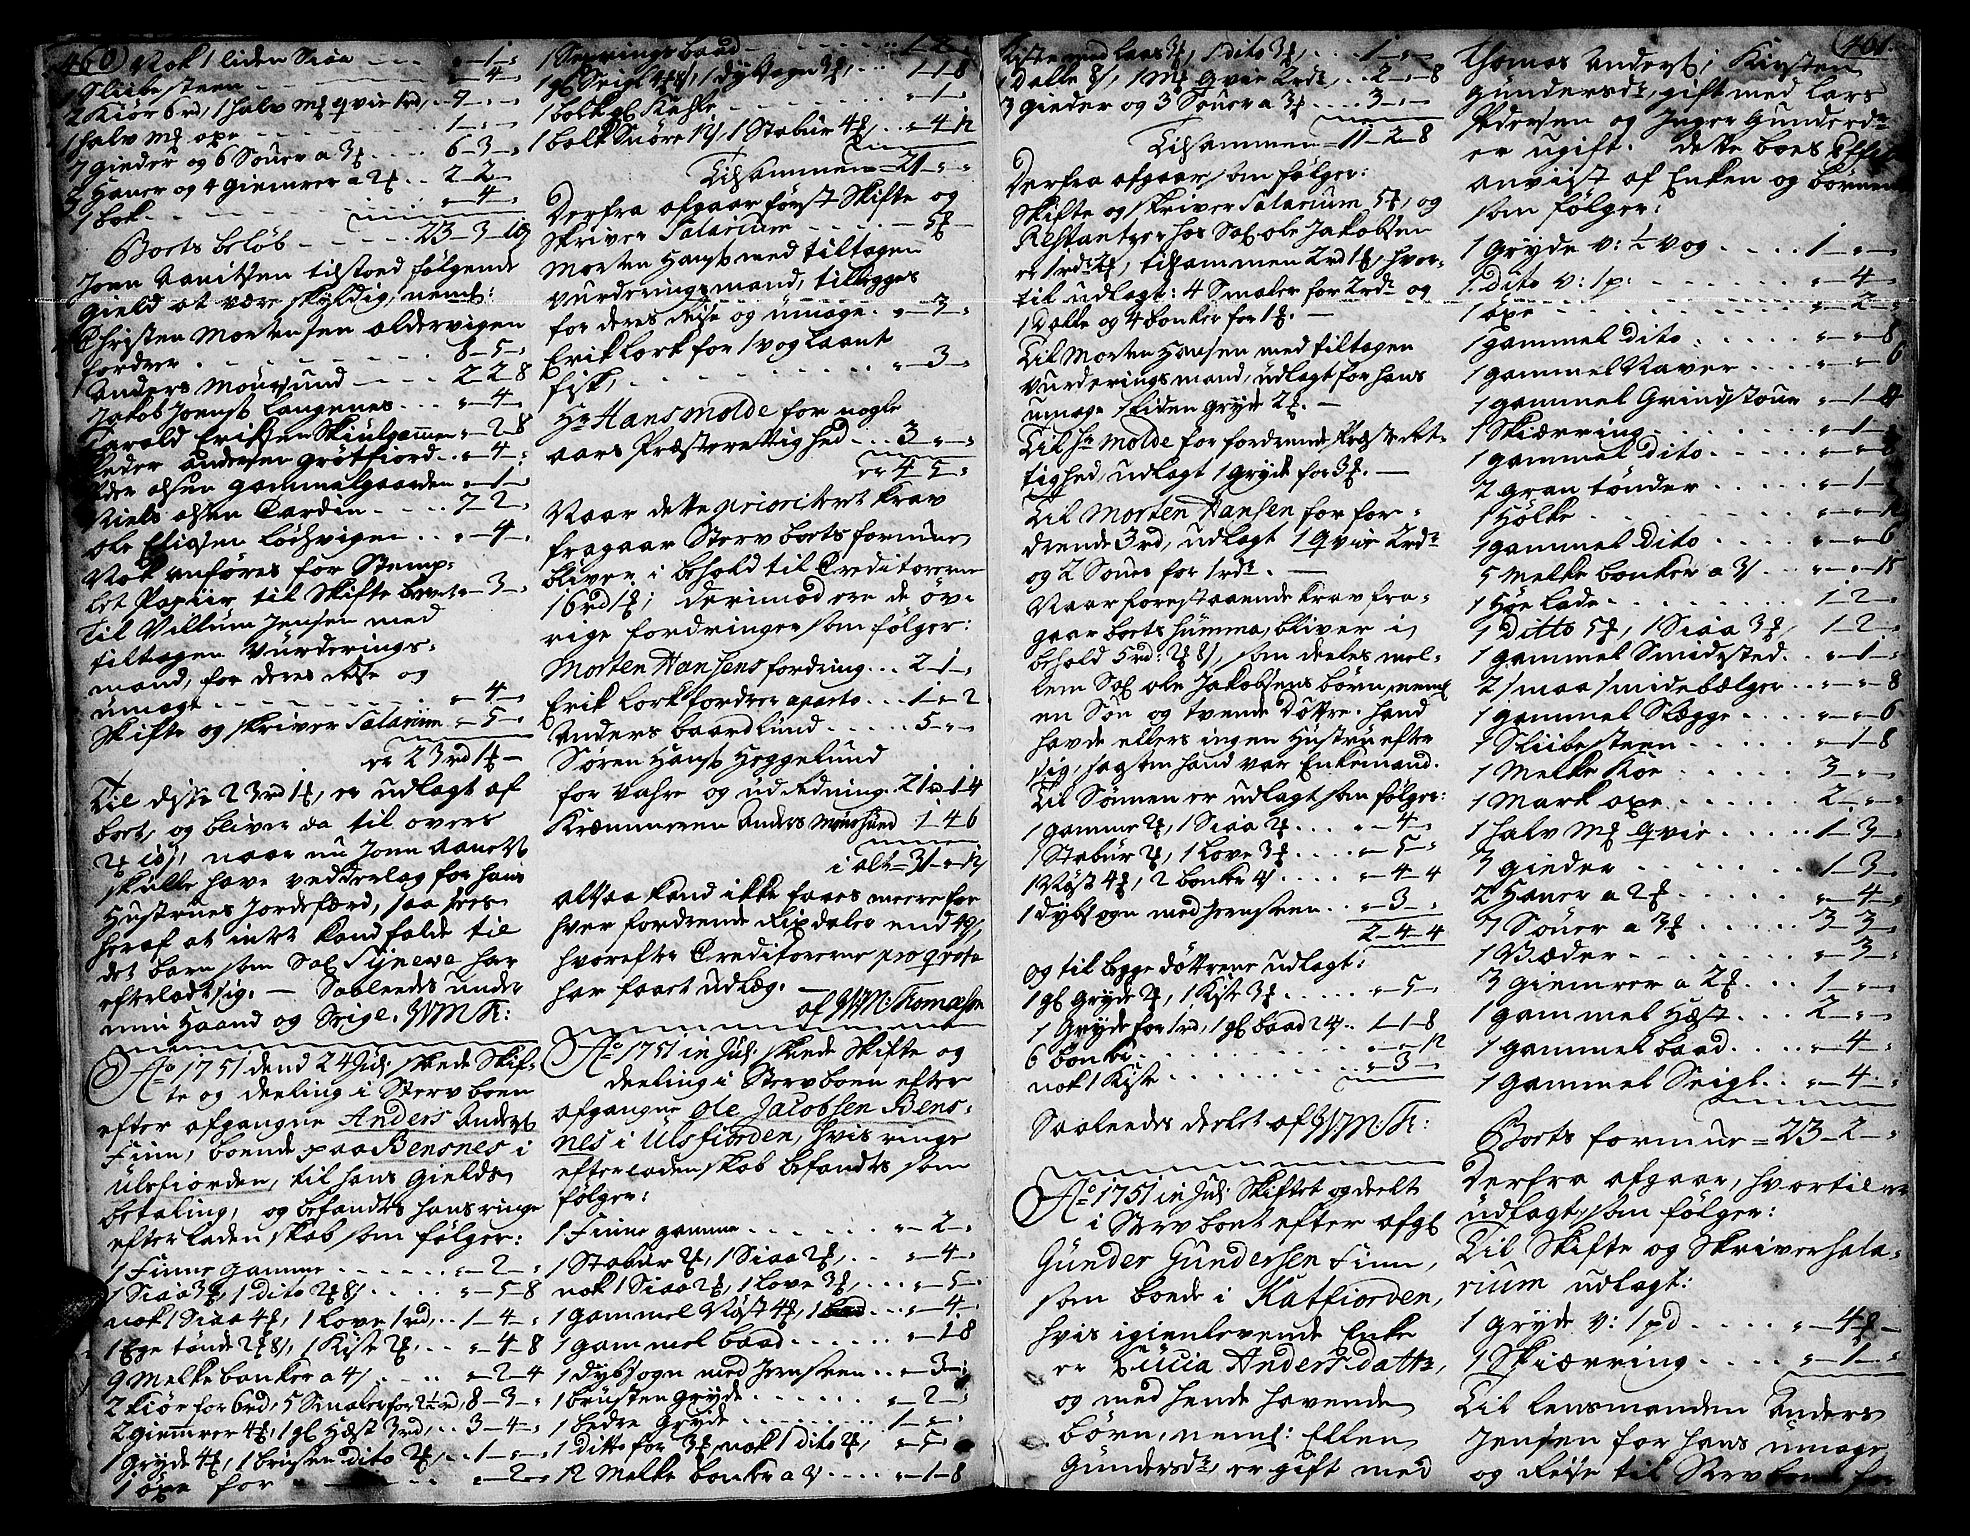 460
Nok 1 liden Siåa - - - „ - 1 - „
1 Sliibesteen - - - - „ - 4 - „
2 Kiör 6rd, 1 halv mꝭ qvie 1rd, .. 7 - „ - „
1 halv Mꝭ oxe - - - - 1 - „ - „
7 gieder og 6 Souer a 3ꝭ . . . . 6 - 3 - „
5 Hauer og 4 giemrer a 2ꝭ . . 2 - 2 -
1 bok - - - - „ - 4 - „
Boets beløb - - - - 23 - 3 - 10
Joen Aanitsen tilstoed følgende
gield at være skyldig, neml:
Christen Mortensen Aldervigen
fordrer - - - - 8 - 5 - „
Anders Moursund - - - - 2 - 2 8
Jakob Joensen Langenes . . . „ - 4 - „
Harald Erichsen Skiulgammen „ - 2 - 8
Peder Andersen Grötfiord . . „ - 4 - „
Peder Olsen Gammelgaarden „ - 1 - „
Niels Olsen Cardin - - - - 7 - 2 - „
Ole Eliesen Lödsvigen . . „ - 4 - „
Nok anføres for Stemp-
let Papiir til Skifte brevet „ - 3 - „
Til Villum Jensen med
tiltagen Vurderings-
mand, for deres Reise og
umage - - - - „ - 4 - „
Skifte og skriver Salarium „ - 5 - „
er 23rd 1ꝭ -
Til disse 23rd 1ꝭ, er udlagt af
boet, og bliver da til overs
2ꝭ 10s, naar nu Joen Aanets
skulle have vedderlag for hans
Hustrues Jordefærd, saa sees
heraf at intet kand falde til
det barn som Sal Synewe har
efterladt sig. — Saaledes under
min Haand og Seigl. WMTh:
Aº 1751 dend 24 Julj skede Skif-
te og deeling i Stervboen
efter afgangne Anders Anders
Finn, boende paa Bensnes i
Ulsfiorden, til hans Gields
betaling, og befandtes hans ringe
efterladenskab som følger:
1 Finne gamme - - - - „ - 2 - „
1 Siåa 3ꝭ, 1 dito 2ꝭ 8s . . . . „ - 5 - 8
nok 1 Siåa 4ꝭ, 1 Love 1rd, . . 1 - 4 - „
1 Ege tønde 2ꝭ 8s, 1 Kiste 2ꝭ . . „ - 4 - 8
9 Melke bonker a 4s . . . . „ - 2 - 4
2 Kiör for 6rd, 5 Smaler for 2½rd, 8 - 3 - „
2 giemrer 4ꝭ, 1 gl Hæst 3rd, . . 3 - 4 - „
1 gryde 4ꝭ, 1 brusten dito 2ꝭ, . . 1 - „ - „
1 öxe for - - - - „ - 2 - „
1 Sexrings baad - - - - 1 - 2 -
1 gl Seigl 4ꝭ 8s, 1 Dybsogn 3ꝭ, . . . 1 - 1 - 8
1 bolk gl Kahle - - - - „ - 1 - „
1 bolk Snöre 12s, 1 Stabur 4ꝭ, . . „ - 4 - 12
Tilsammen - 21 - „ - „
Derfra afgaar først Skifte og
Skriver Salarium - - - - 5ꝭ -
Morten Hansen med tiltagen
vurderingsmand, tillegges
for deres Reise og umage . „ - 3 - „
Erik Lork for 1 vog laant
fisk, - - - - „ - 3 - „
Hr Hans Molde for nogle
aars Præsterettighed . . . 3 - „ - „
er 4 - 5 - „
Naar dette prioriteret krav
fragaar Stervboets formue
bliver i behold til Creditorerne
16rd 1ꝭ; derimod ere de öv-
rige fordringer som følger:
Morten Hansens fordring . . . 2 - 1 - „
Erik Lork fordrer aparte . . . 1 - „ - 2
Anders Baardlund . . . . . 5 - „ - „
Søren Hansen Heggelund
for Vahre og udredning . 21 - „ - 14
Kræmmeren Anders Moursund 1 - 4 6
i alt - 31 - „ - 12
Altsaa kand ikke faaes meere for
hver fordrende Rixdaler end 49s,
hvorefter Creditorerne pro qvota
har faaet udlæg. —
af WM: Thomesen
Aº 1751 in Julj skede Skifte og
deeling i Stervboen efter
afgangne Ole Jacobsen Bens-
nes i Ulsfiorden, hvis ringe
efterladenskab befandtes som
følger:
1 Finne gamme - - - - „ - 2 - „
1 Stabur 2ꝭ, 1 Siåa 2ꝭ, . . „ - 4 - „
nok 1 Siåa 2ꝭ, 1 Love 3ꝭ, . . . „ - 5 - „
1 gammel Nöst 4ꝭ, 1 . . . „ - 4 - „
1 gammel baad . . . . . . „ - 1 8
1 dybsogn med Jernsteen . . „ - 3 - „
1 brusten gryde . . . . . „ - 2 - „
1 bedre gryde - - - - 1 - „ - „
1 ditto for 3ꝭ, nok 1 dito 2ꝭ, „ - 5 - „
12 Melke bonker a 2s . . . . „ - 1 - 8
461.
Kiste med laas 3ꝭ, 1 dito 3ꝭ, . . . 1 - „ - „
1 Dalle 8s, 1 Mꝭ qvie 2rd, . . 2 - „ - 8
3 gieder og 3 Souer a 3ꝭ . . . . 3 - „ -
Tilsammen - 11 - 2 - 8
Derfra afgaar som følger:
Skifte og skriver Salarium 5ꝭ, og
Restantzer hos Sal Ole Jakobsen
er 1rd 2ꝭ, tilsammen 2rd 1ꝭ, hvor-
til udlagt: 4 Smaler for 2rd og
1 Dalle og 4 bonker for 1ꝭ. —
Til Morten Hansen med tiltagen
vurderings mand, udlagt for hans
umage 1 liden gryde 2ꝭ. —
Til Hr Molde for fordrende Præsteret-
tighed, udlagt 1 gryde for 3ꝭ. —
Til Morten Hansen for for-
drende 3rd, udlagt 1 qvie 2rd
og 2 Souer for 1rd. —
Naar forestaaende krav fra-
gaar boets summa, bliver i
behold 5rd: 2ꝭ 8s, som deeles mel-
lem Sal Ole Jakobsens börn, neml
en Sön og tvende Döttre. Hand
havde ellers ingen Hustru efter
sig, saasom hand var Enkemand.
Til Sønnen er udlagt som følger:
1 gamme 2ꝭ, 1 Siåa 2ꝭ . . . . „ - 4 - „
1 Stabur 2ꝭ, 1 Love 3ꝭ . . . . „ - 5 - „
1 Nöst 4ꝭ, 2 bonker 4s . . . . „ - 4 - 4
1 dybsogn med Jernsteen . . „ - 3 - „
2 - 4 - 4
og til begge döttrene udlagt:
1 gl Gryde 2ꝭ, 1 Kiste 3ꝭ . . . . . „ - 5 - „
1 Gryde for 1rd, 1 gl baad 24s . . 1 - 1 - 8
6 bonker . . . . . . . „ - „ - 12
nok 1 Kiste - - - - „ - 3 - „
Saaledes deelet af WM:Th:
Aº 1751 in Julj Skiftet og deelt
i Stervboet efter afgl
Gunder Gundersen Finn,
som boede i Katfiorden,
hvis igienlevende Enke
er Lucia Andersdattr,
og med hende havende
børn, neml: Ellen
Gundersdr, er gift med
Thomas Anders; Kirsten
Gundersdr, gift med Lars
Pedersen og Inger Gundersdr
er ugift. Dette boes
anvist af Enken og børnene
som følger:
1 Gryde v: ½ vog . . . . . 1 - „ - „
1 dito v: 1 p: - - - - „ - 4 - „
1 öxe - - - - „ - 2 - „
1 gammel dito . . . . . „ - „ - 8
1 gammel Naver . . . „ - „ - 6
1 gammel Grindstoue „ - 1 - 8
1 Skiærring - - - - „ - 1 -
1 gammel dito . . . . . „ - „ - 8
2 gran tönder - - - - „ - 1 -
1 Hölke . . . . . „ - „ - 12
1 gammel dito . . . . „ - „ - 6
5 Melke bonker a 3s . . „ - „ - 15
1 Höe lade . . . . . . . . 1 - 2 - „
1 ditto 5ꝭ, 1 Siåa 3ꝭ, 1 - 2 - „
1 gammel Smidested . . „ - 1 - „
2 smaa smidebælger . . „ - „ - 8
1 gammel Slægge . . . . „ - „ - 6
1 Sliibesteen - - - - „ - 1 - 8
1 Melke Koe - - - - 3 - „ -
1 Mark oxe - - - - 2 - „ - „
1 halv Mꝭ qvie . . . . . 1 - 3 - „
3 gieder - - - - 1 - 3 - „
2 Hauer a 2ꝭ . . . . . „ - 4 - „
7 Souer a 3ꝭ . . . . . 3 - 3 - „
1 Væder - - - - „ - 3 - „
3 giemrer a 2ꝭ . . . 1 - „ - „
1 gammel Hæst . . . 2 - „ - „
1 gammel baad . . . „ - 4 - „
1 gammel Seigl . . „ - 4 - „
Boets formue = 23 - 2 - „
Derfra afgaar, hvortil er
udlagt, som følger:
Til Skifte og Skriver Sala-
rium udlagt:
1 gryde v: 1 pd . . . . . „ - 4ꝭ -
1 Skiærring - - - - „ - 1 - „
Til Lensmanden Anders
Jensen for hans umage
og Reise til Stervboet for